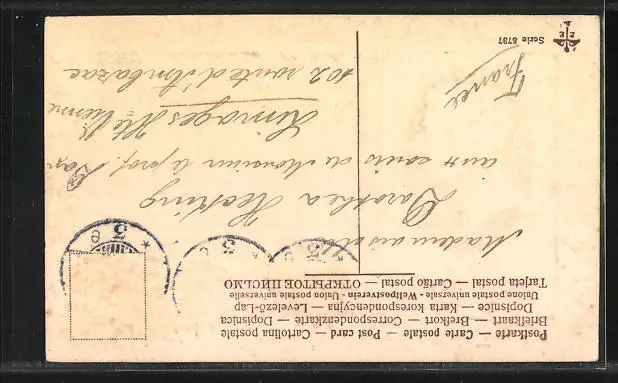 Postkarte — Carte postale — Post card — Cartolina postale
Briefkaart — Brefkort — Correspondenzkarte — Dopisnica
Dopisnice — Karta korespondencyjna — Levelező-Lap
Unione postale universale - Weltpostverein - Union postale universelle
Tarjeta postal — Cartão postal — ОТКРЫТОЕ ПИСЬМО
Mademoiselle
Dorothea
aux soins de Monsieur le prof.
Limoges Hte Vienne
102 route d'Ambazac
France
Serie 5787
3
8
3
8